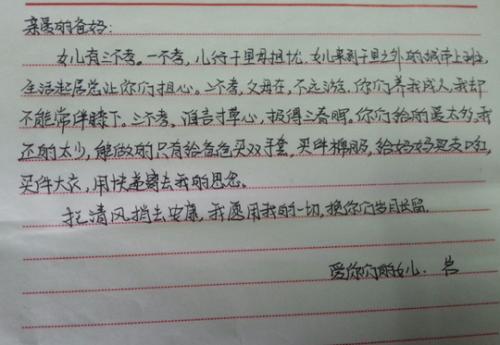 亲爱的爸妈:
女儿有三不孝。一不孝,儿行千里母担忧,女儿来到千里之外的城市上班,
生活起居总让你们担心。二不孝,父母在,不远游,你们养我成人,我却
不能常伴膝下。三不孝,谁言寸草心,报得三春晖,你们给的爱太多,我
还的太少,能做的只有给爸爸买双手套,买件棉服,给妈妈买支口红,
买件大衣,用快递寄去我的思念。
我托清风捎去安康,我愿用我的一切,换你们岁月长留。
爱你们的女儿.